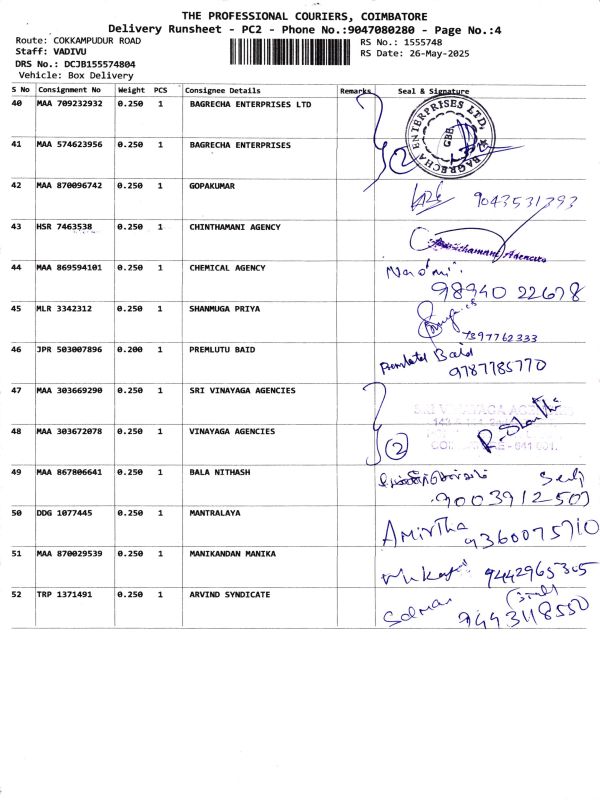 THE PROFESSIONAL COURIERS, COIMBATORE
Delivery Runsheet - PC2 - Phone No.:9047080280 - Page No.:4
Route: COKKAMPUDUR ROAD
Staff: VADIVU
DRS No.: DCJB155574804
Vehicle: Box Delivery
RS No.: 1555748
RS Date: 26-May-2025
S No Consignment No Weight PCS Consignee Details Remarks Seal & Signature
40 MAA 709232932 0.250 1 BAGRECHA ENTERPRISES LTD
BAGRECHA ENTERPRISES LTD.
GBB
41 MAA 574623956 0.250 1 BAGRECHA ENTERPRISES 2
42 MAA 870096742 0.250 1 GOPAKUMAR 9043531393
43 HSR 7463538 0.250 1 CHINTHAMANI AGENCY Chinthamani Agencies
44 MAA 869594101 0.250 1 CHEMICAL AGENCY
98940 22678
45 MLR 3342312 0.250 1 SHANMUGA PRIYA
7397762333
46 JPR 503007896 0.200 1 PREMLUTU BAID Premlutu Baid
9787785770
47 MAA 303669290 0.250 1 SRI VINAYAGA AGENCIES
SRI VINAYAGA AGENCIES
48 MAA 303672078 0.250 1 VINAYAGA AGENCIES 2 R. Shanthi
COIMBATORE - 641 001.
49 MAA 867806641 0.250 1 BALA NITHASH
9003912507
50 DDG 1077445 0.250 1 MANTRALAYA Amirtha 9360075710
51 MAA 870029539 0.250 1 MANIKANDAN MANIKA 9442965305
52 TRP 1371491 0.250 1 ARVIND SYNDICATE
9443118550